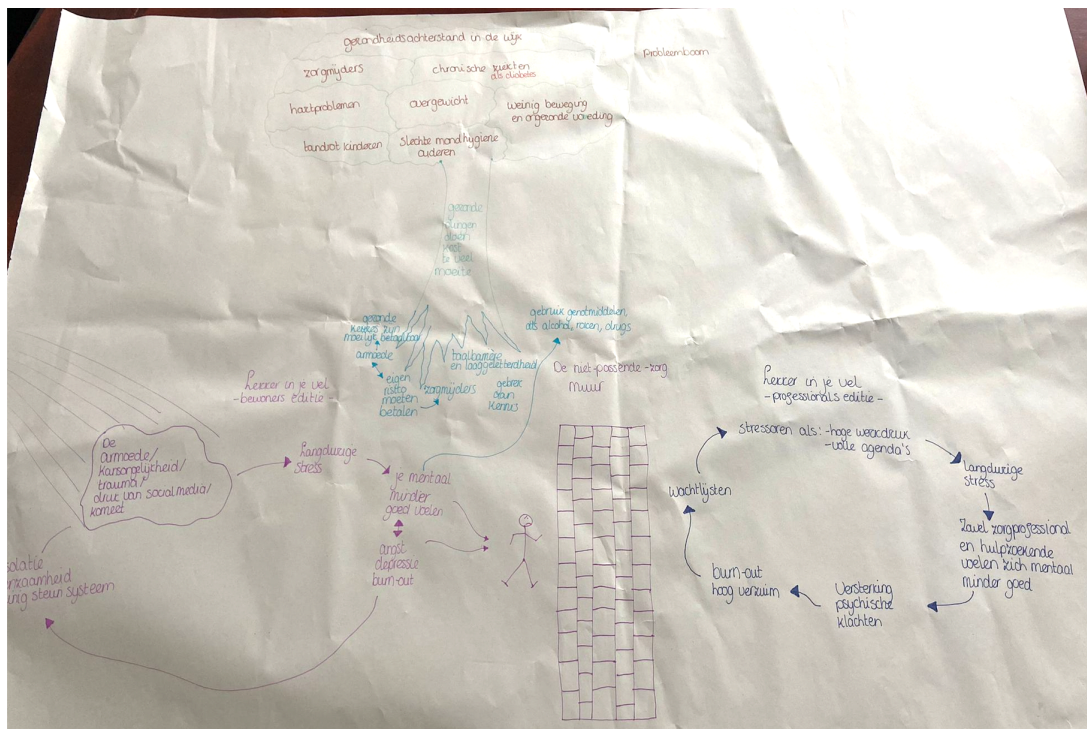 gezondheidsachterstand in de wijk
Probleemboom
zorgmijders
chronische ziekten
als diabetes
hartproblemen
overgewicht
weinig beweging
en ongezonde voeding
tandrot kinderen
slechte mondhygiene
ouderen
gezonde
dingen
doen
kost
te veel
moeite
gezonde
keuzes zijn
moeilijk betaalbaar
armoede
eigen
risico
moeten
betalen
zorgmijders
taalbarrière
en laaggeletterdheid
gebrek
aan
kennis
gebruik genotmiddelen,
als alcohol, roken, drugs
De niet-passende-zorg
muur
Lekker in je vel
-bewoners editie-
De
armoede/
kansongelijkheid/
trauma/
druk van social media/
komeet
Langdurige
stress
je mentaal
minder
goed voelen
angst
depressie
burn-out
solatie
nzaamheid
nig steun systeem
Lekker in je vel
-professionals editie-
stressoren als: -hoge werkdruk
-volle agenda's
Langdurige
stress
Zowel zorgprofessional
en hulpzoekende
voelen zich mentaal
minder goed
Versterking
psychische
klachten
burn-out
hoog verzuim
wachtlijsten